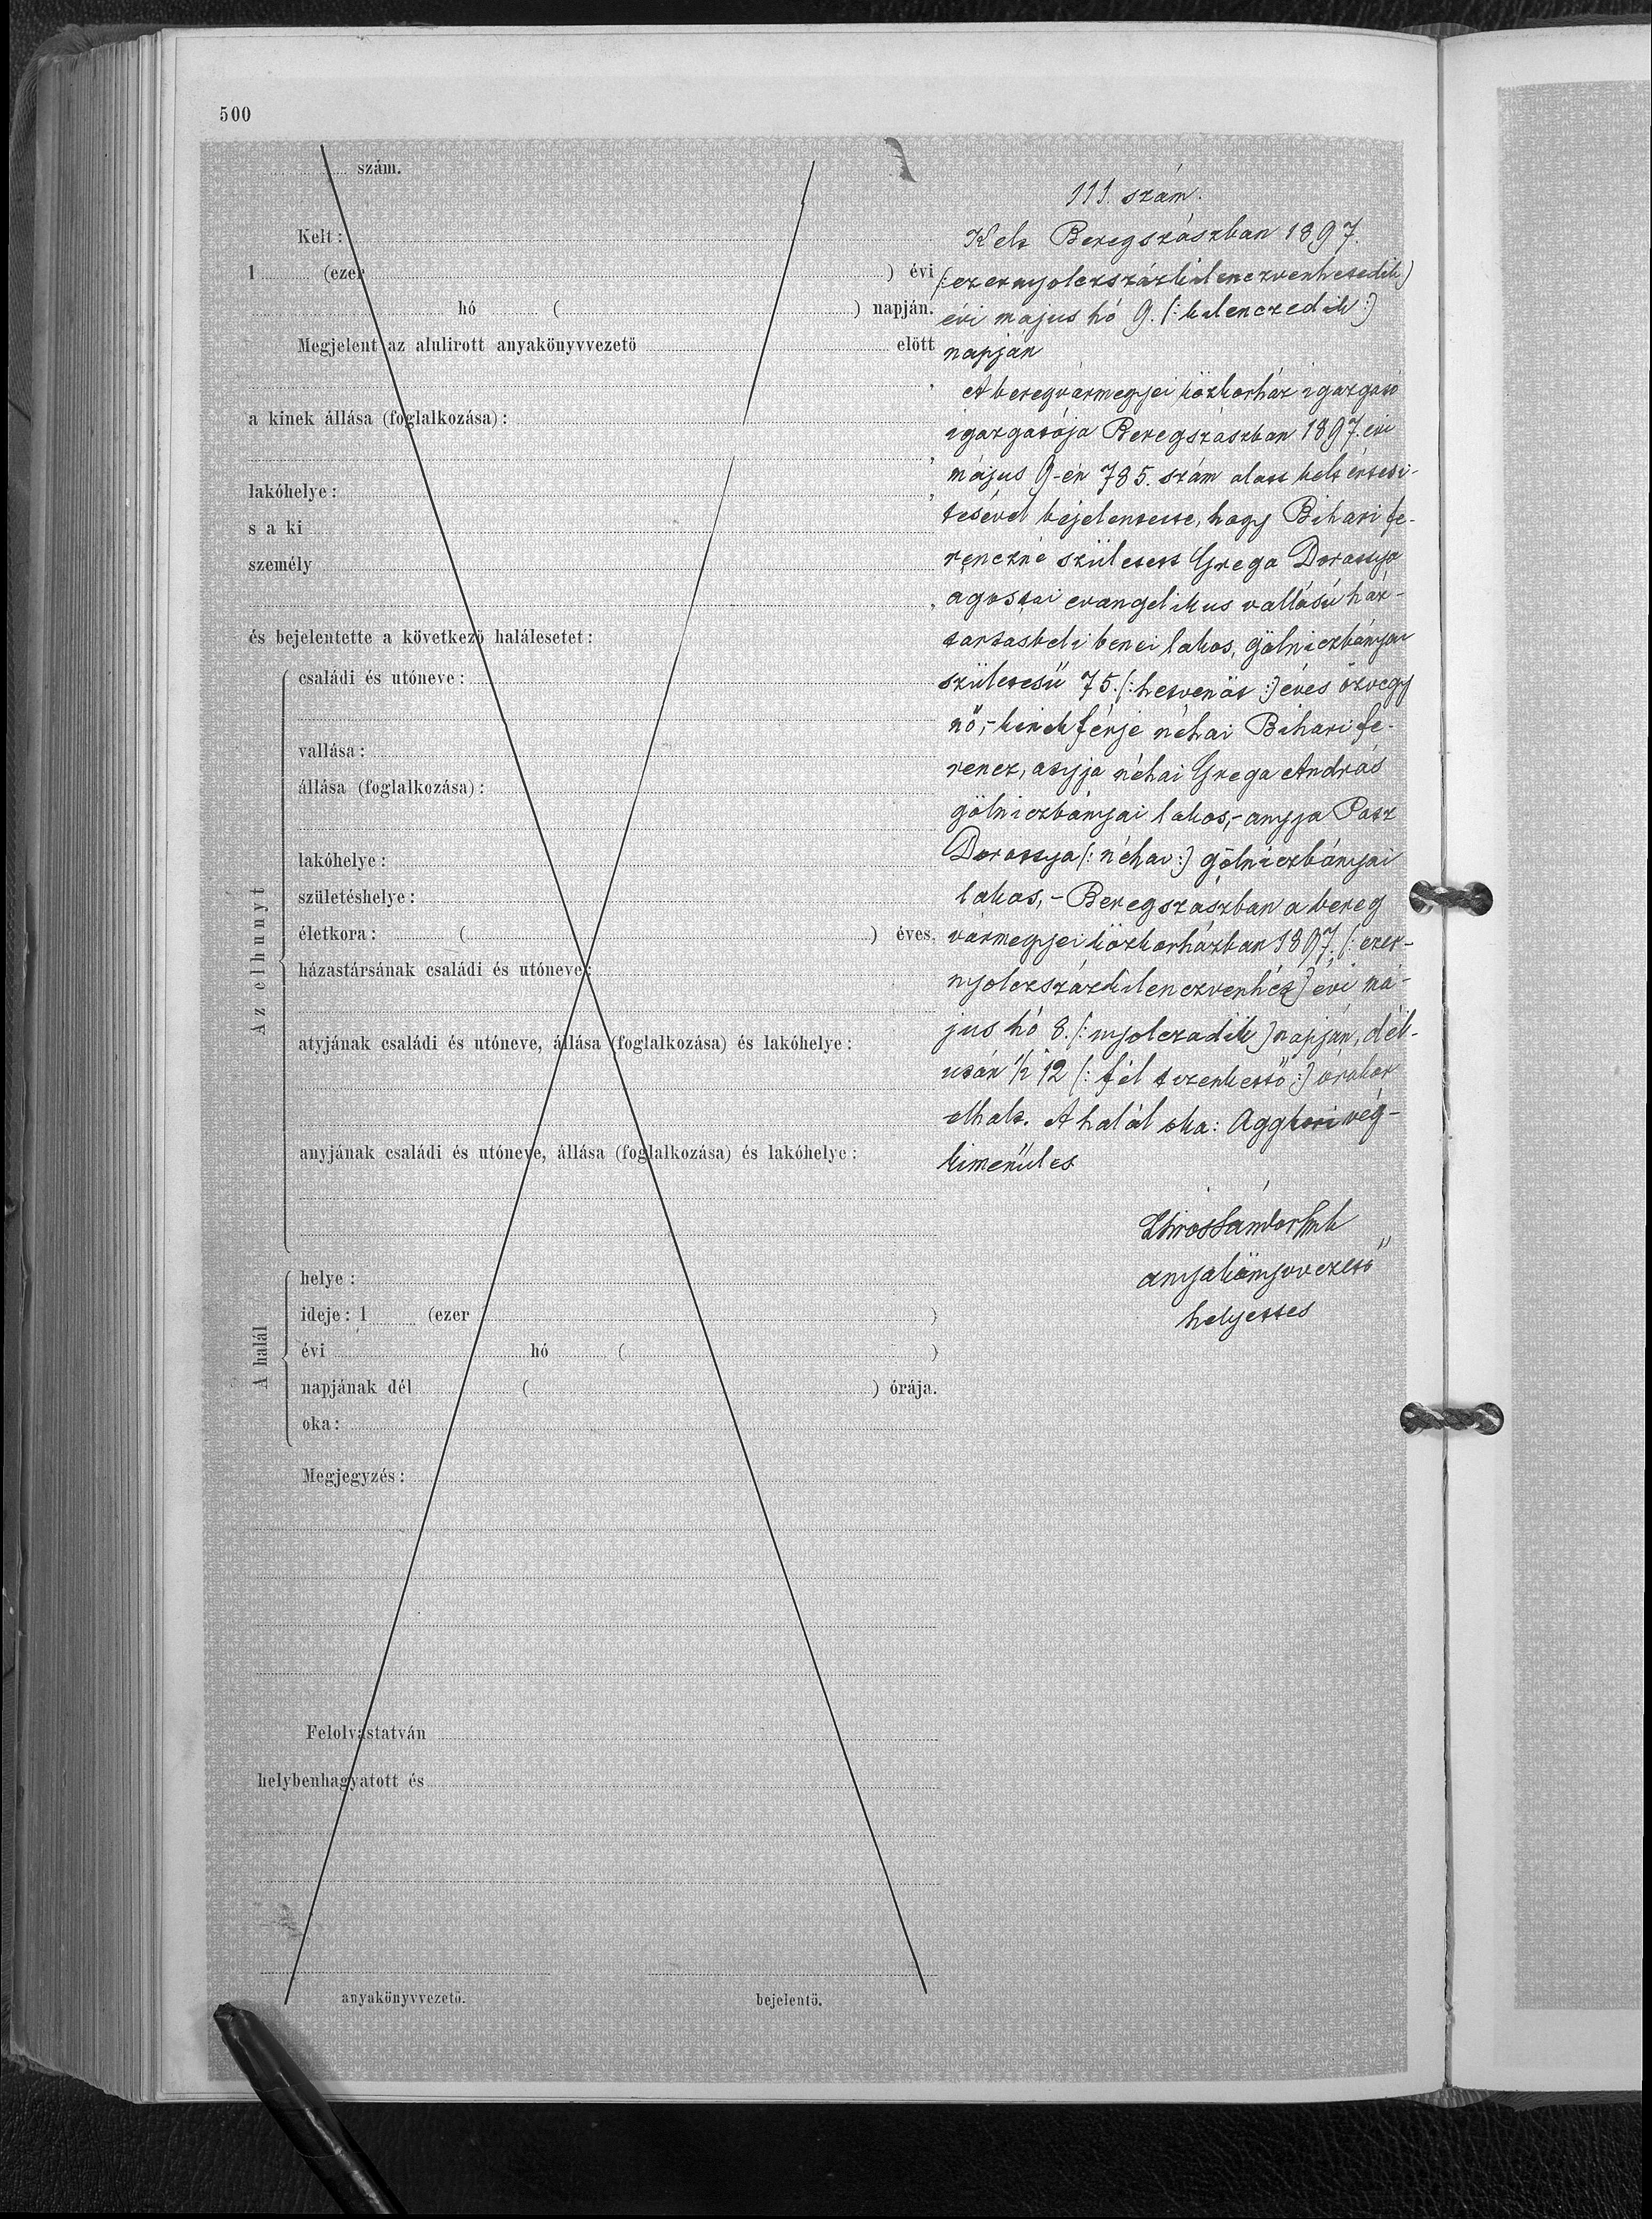 500
szám.
Kelt:
1 (ezer ) évi
hó ( ) napján.
Megjelent az alulirott anyakönyvvezető előtt
,
a kinek állása (foglalkozása):
,
lakóhelye: ,
s a ki
személy
,
és bejelentette a következő halálesetet:
Az elhunyt
családi és utóneve:
vallása:
állása (foglalkozása):
lakóhelye:
születéshelye:
életkora: ( ) éves.
házastársának családi és utóneve:
atyjának családi és utóneve, állása (foglalkozása) és lakóhelye:
anyjának családi és utóneve, állása (foglalkozása) és lakóhelye:
A halál
helye:
ideje: 1 (ezer )
évi hó ( )
napjának dél ( ) órája.
oka:
Megjegyzés:
Felolvastatván
helybenhagyatott és
anyakönyvvezető. bejelentő.
111. szám.
Kelt Beregszászban 1897.
(: ezernyolczszázkilenczvenhetedik)
évi május hó 9. (: kilenczedik :)
napján
A beregvármegyei közkorház igazgató
igazgatója Beregszászban 1897. évi
május 9-én 785. szám alatt kelt értesi-
tésével bejelentette, hogy Bihari Fe-
renczné született Grega Dorottya
ágostai evangelikus vallású ház-
tartásbeli benei lakos, gölniczbányai
születésü 75. (: hetvenöt :) éves özvegy
nő,- kinek férje néhai Bihari Fe-
rencz, atyja néhai Grega András
gölniczbányai lakos,- anyja Patz
Dorottya (: néhai :) gölniczbányai
lakos,- Beregszászban a bereg
vármegyei közkorházban 1897. (: ezer-
nyolczszázkilenczvenhét) évi má-
jus hó 8. (: nyolczadik ) napján, dél-
után 1/2 12 (: fél tizenkettő :) órakor
elhalt. A halál oka: Aggkori vég-
kimerülés
anyakönyvvezető
helyettes